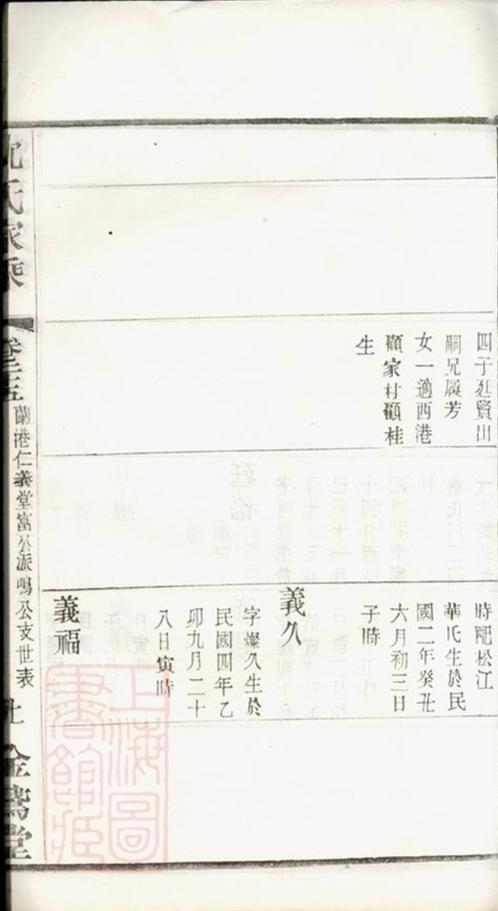 四子廷賢出
嗣兄履芳
女一適西港
顧家村顧桂
生
時配松江
華氏生於民
國二年癸丑
六月初三日
子時
義久
字燦久生於
民國四年乙
卯九月二十
八日寅時
義福
沈氏家乘
卷三五
蘭港仁義堂富公派鳴公支世表
上海圖書館藏